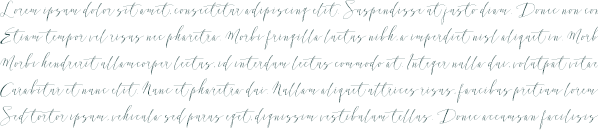 Lorem ipsum dolor sit amet, consectetur adipiscing elit. Suspendisse at justo diam. Donec non con
Etiam tempor vel risus nec pharetra. Morbi fringilla luctus nibh, a imperdiet nisl aliquet in. Morb
Morbi hendrerit ullamcorper lectus, id interdum lectus commodo at. Integer nulla dui, volutpat vitae
Curabitur et nunc elit. Nunc et pharetra dui. Nullam aliquet ultrices risus, faucibus pretium lorem
Sed tortor ipsum, vehicula sed purus eget, dignissim vestibulum tellus. Donec accumsan facilisis